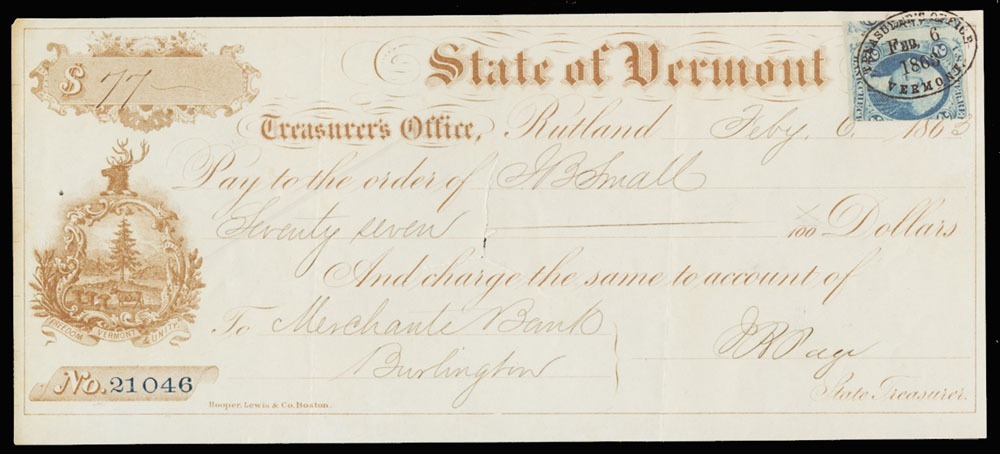 $ 77
State of Vermont
TREASURER'S OFFICE
FEB. 6
1863
VERMONT.
Treasurer's Office, Rutland Feby. 6 1863
Pay to the order of J B Small
Seventy seven x/100 Dollars
And charge the same to account of
To Merchants Bank
Burlington
J B Page
State Treasurer.
FREEDOM VERMONT & UNITY
No. 21046
Hooper, Lewis & Co. Boston.